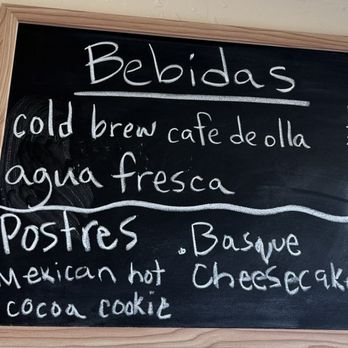 Bebidas
cold brew cafe de olla
agua fresca
Postres
Mexican hot
cocoa cookie
. Basque
Cheesecake